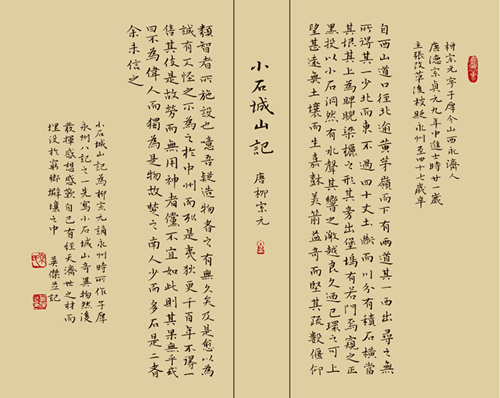 柳宗元字子厚今山西永濟人
唐德宗貞元九年中進士時廿一歲
主張改革後被貶永州至四十七歲卒
自西山道口徑北逾黃茅嶺而下有兩道其一西出尋之無
所得其一少北而東不過四十丈土斷而川分有積石橫當
其垠其上為睥睨梁欐之形其旁出堡塢有若門焉窺之正
黑投以小石洞然有水聲其響之激越良久乃已環之可上
望甚遠無土壤而生嘉樹美箭益奇而堅其疏數偃仰
小石城山記 唐柳宗元
類智者所施設也意吾疑造物者之有無久矣及是愈以為
誠有又怪其不為之於中州而列是夷狄更千百年不得一
售其伎是故勞而無用神者儻不宜如此則其果無乎或
曰不為偉人而獨為是物故楚之南人少而多石是二者
余未信之
小石城山記為柳宗元謫永州時所作子厚
永州八記之一先寫小石城山奇異物然後
發揮感想感歎自己有經天濟世之材而
埋沒於窮鄉僻壤之中